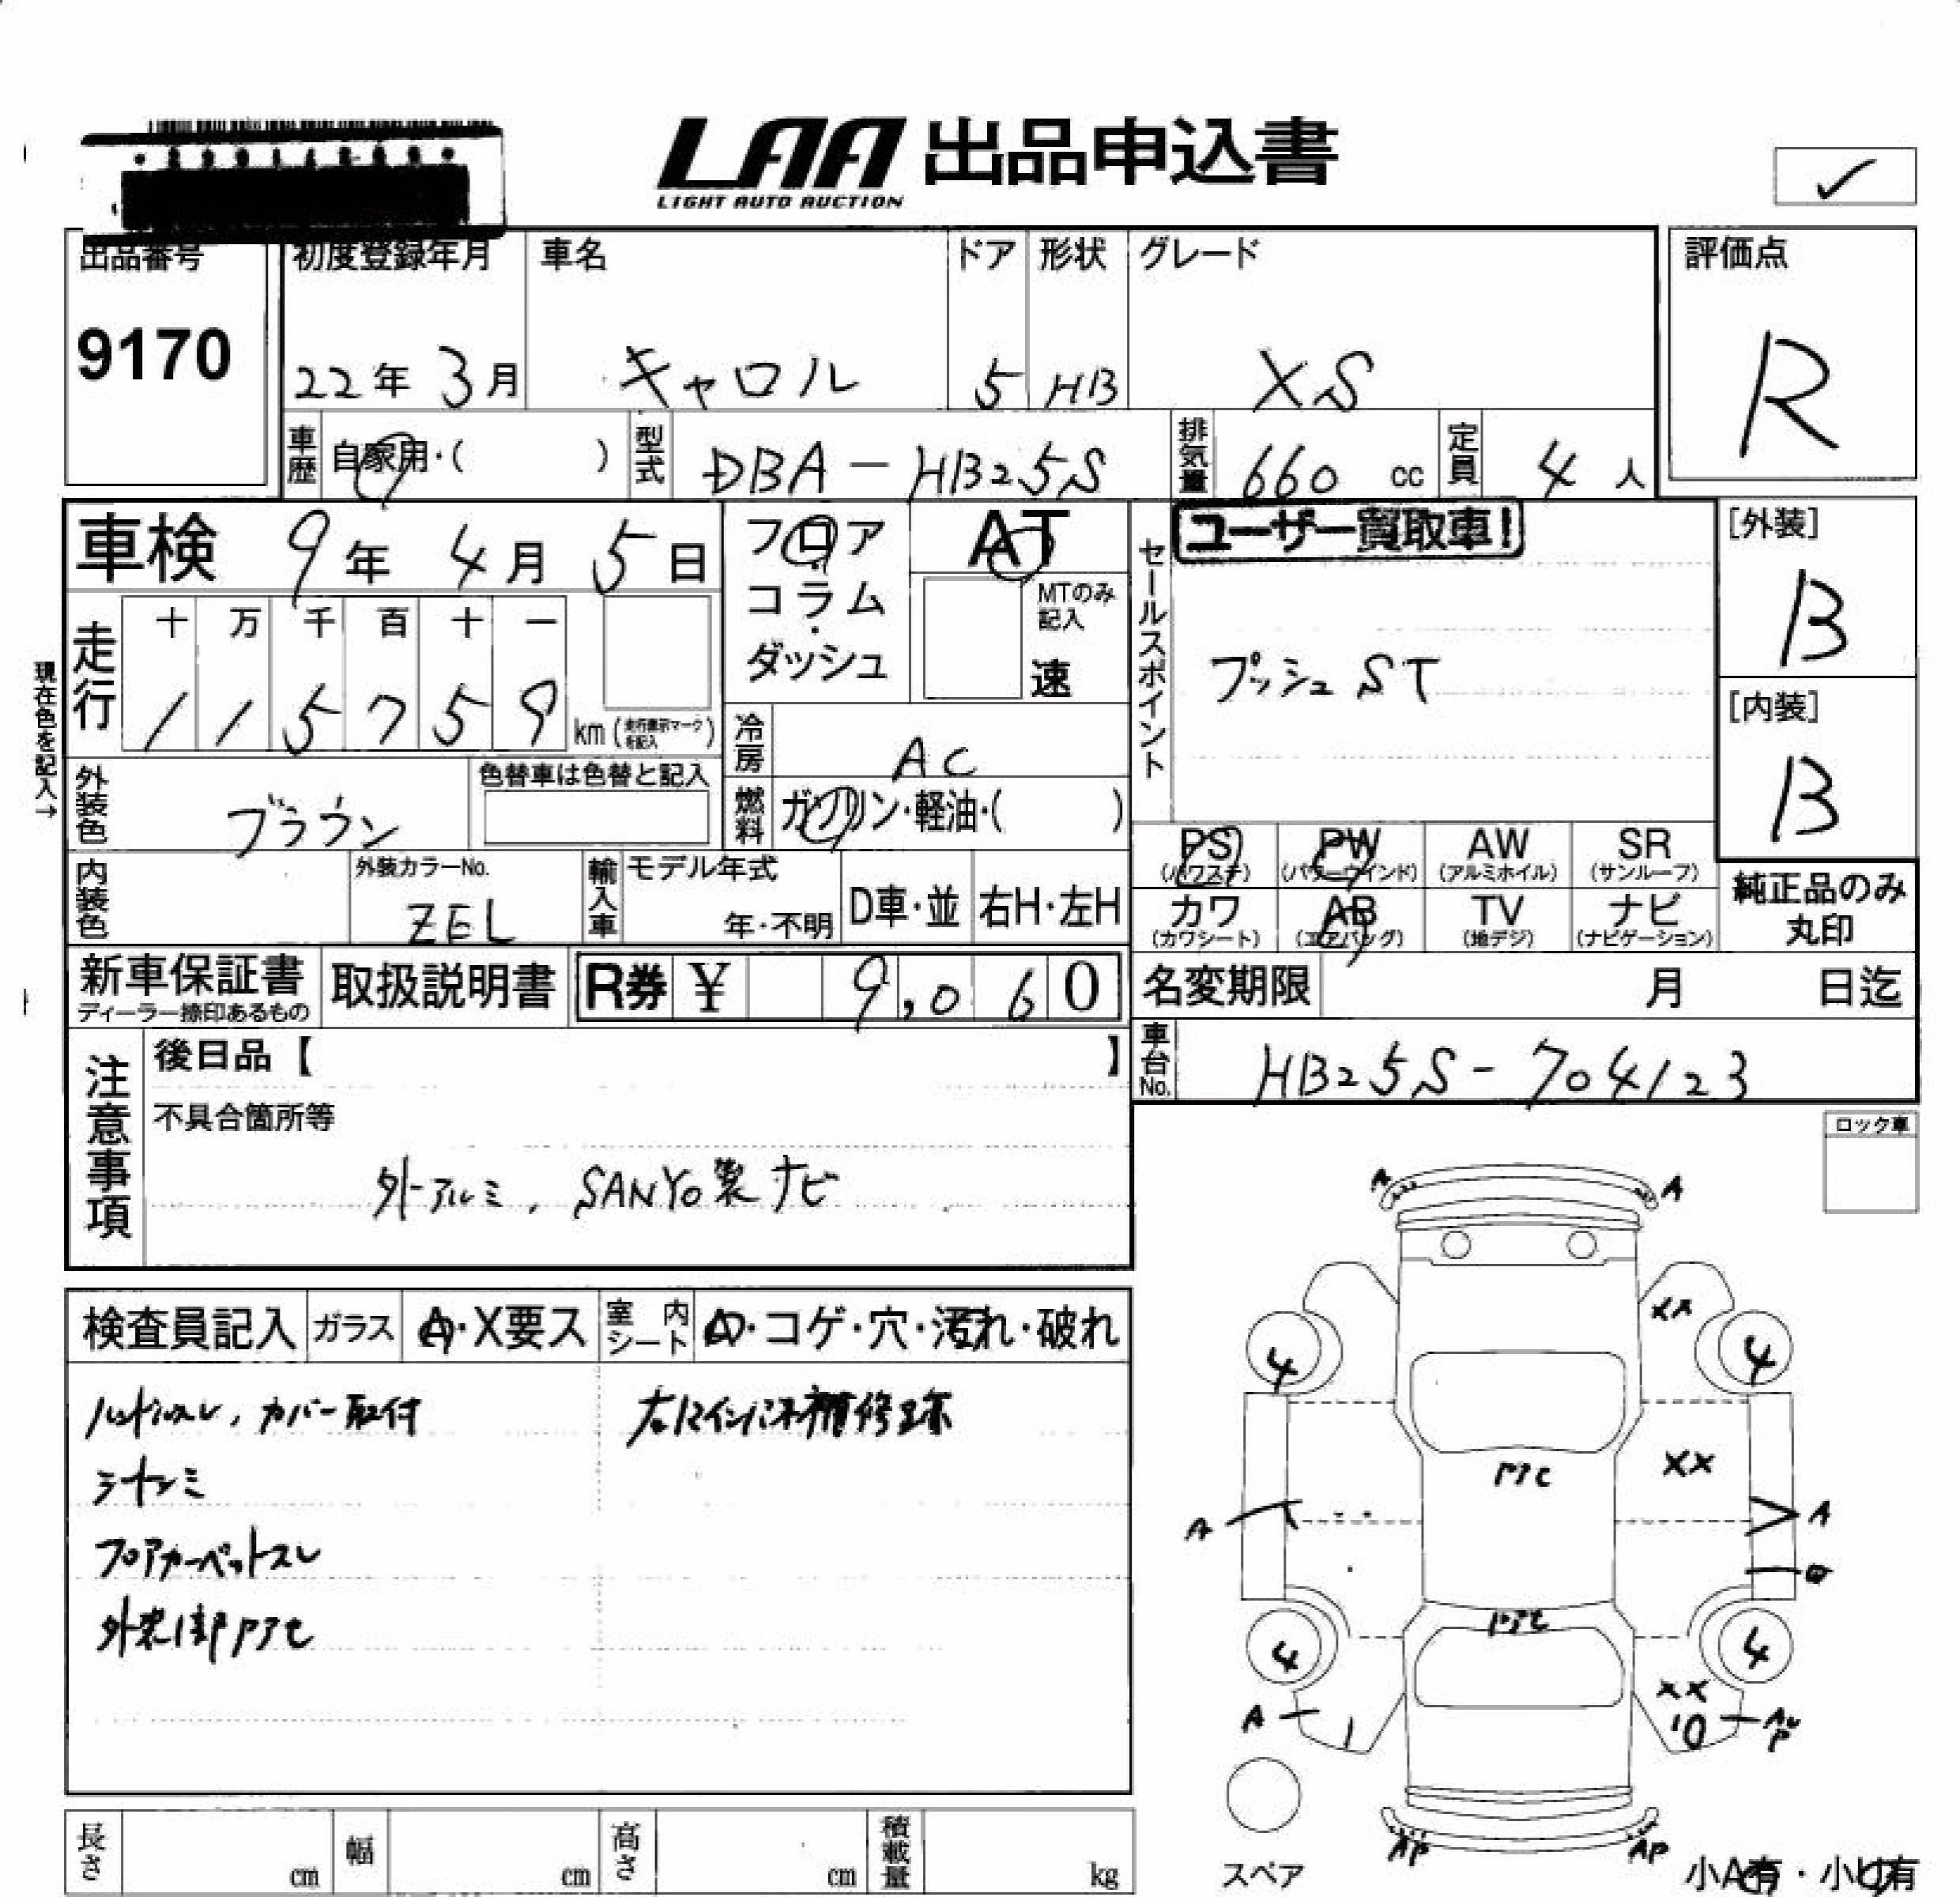 LAA 出品申込書
LIGHT AUTO AUCTION
✓
出品番号
9170
初度登録年月
22年 3月
車名
キャロル
ドア
5
形状
HB
グレード
XS
評価点
R
車歴 自家用・( )
型式 DBA-HB25S
排気量 660 cc
定員 4人
車検 9年 4月 5日
フロア
コラム
・
ダッシュ
AT
MTのみ記入
速
セールスポイント
ユーザー買取車!
プッシュST
[外装]
B
[内装]
B
現在色を記入→
走行
十 万 千 百 十 一
1 1 5 7 5 9 km (走行表示マークを記入)
冷房 AC
燃料 ガソリン・軽油・( )
外装色 ブラウン
色替車は色替と記入
内装色
外装カラーNo.
ZEL
輸入車
モデル年式
年・不明
D車・並
右H・左H
PS (パワステ)
PW (パワーウインド)
AW (アルミホイル)
SR (サンルーフ)
カワ (カワシート)
AB (エアバッグ)
TV (地デジ)
ナビ (ナビゲーション)
純正品のみ
丸印
新車保証書
ディーラー捺印あるもの
取扱説明書
R券 ¥ 9,060
名変期限 月 日迄
車台No. HB25S-704123
注意事項
後日品【 】
不具合箇所等
外アルミ, SANYO製ナビ
ロック車
検査員記入
ガラス A・X要ス
室内シート の・コゲ・穴・汚れ・破れ
ハンドルスレ, カバー取付
フロアカーペットスレ
A A
XX
4 4
XX
A A
4 4
XX
A
AP AP
スペア
小A有・小U有
長さ cm
幅 cm
高さ cm
積載量 kg